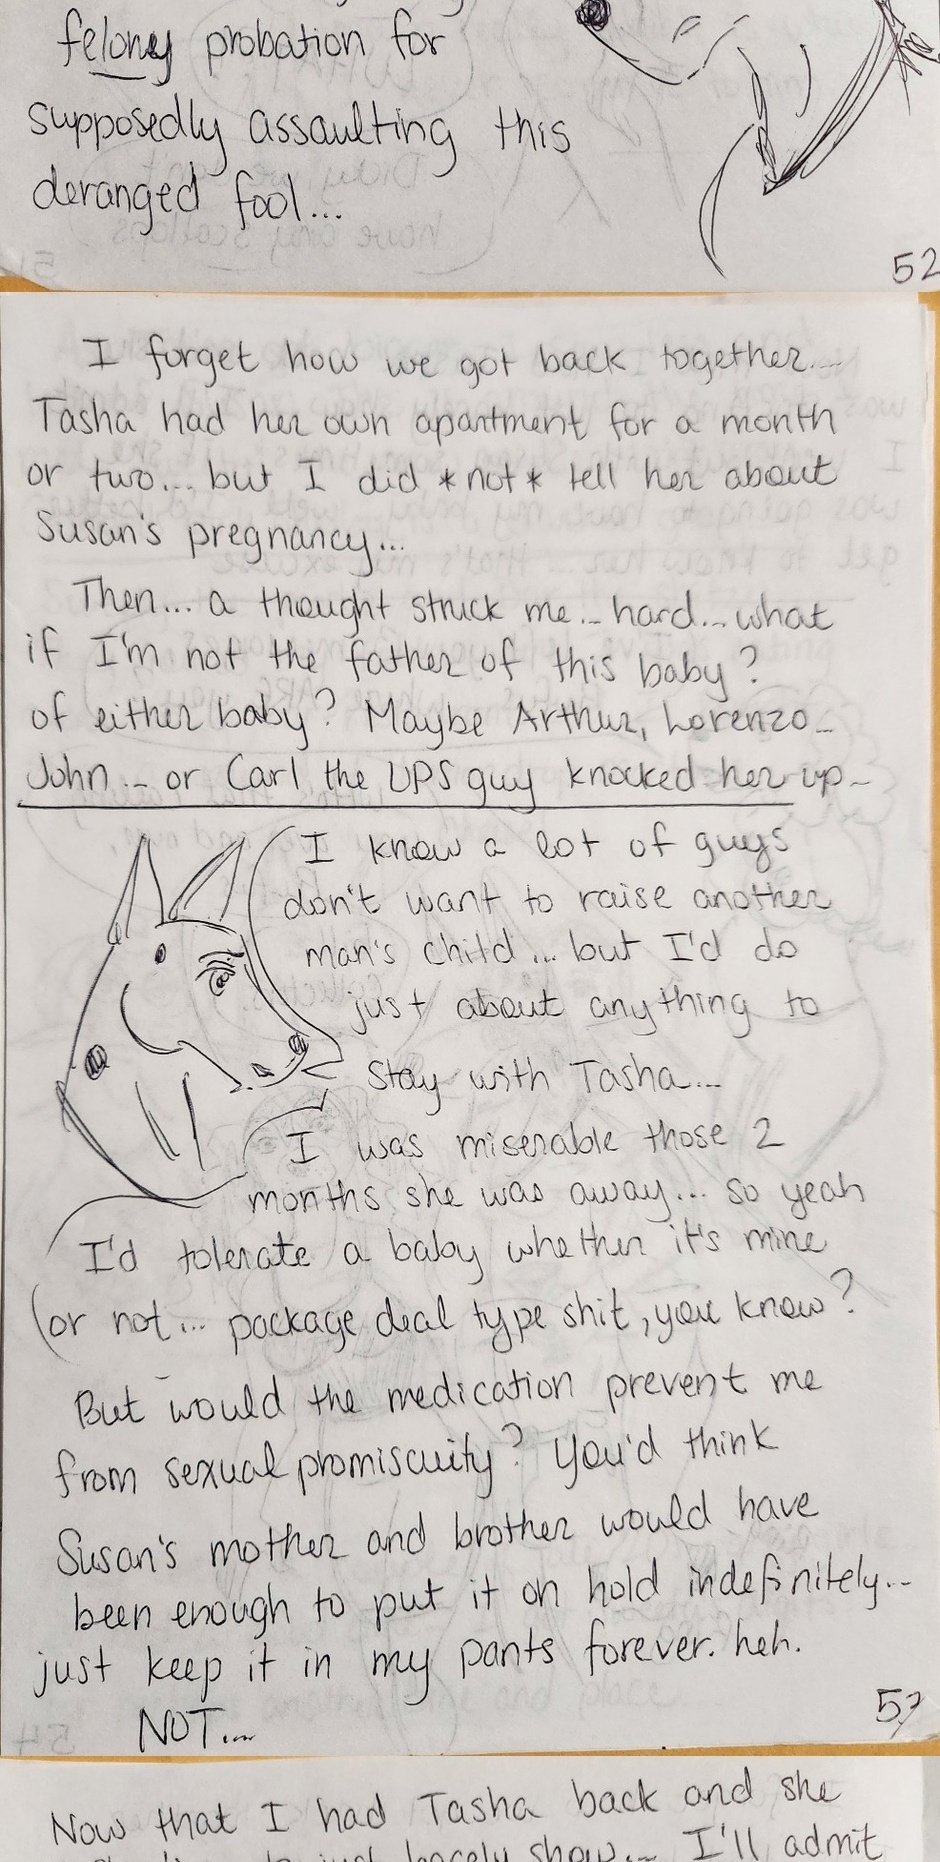 felony probation for
supposedly assaulting this
deranged fool...
52
I forget how we got back together....
Tasha had her own apartment for a month
or two... but I did *not* tell her about
Susan's pregnancy...
Then... a thought struck me... hard... what
if I'm not the father of this baby?
of either baby? Maybe Arthur, Lorenzo...
John... or Carl the UPS guy knocked her up...
I know a lot of guys
don't want to raise another
man's child... but I'd do
just about anything to
stay with Tasha...
I was miserable those 2
months she was away... so yeah
I'd tolerate a baby whether it's mine
or not... package deal type shit, you know?
But would the medication prevent me
from sexual promiscuity? You'd think
Susan's mother and brother would have
been enough to put it on hold indefinitely...
just keep it in my pants forever. heh.
NOT...
53
Now that I had Tasha back and she
just show... I'll admit